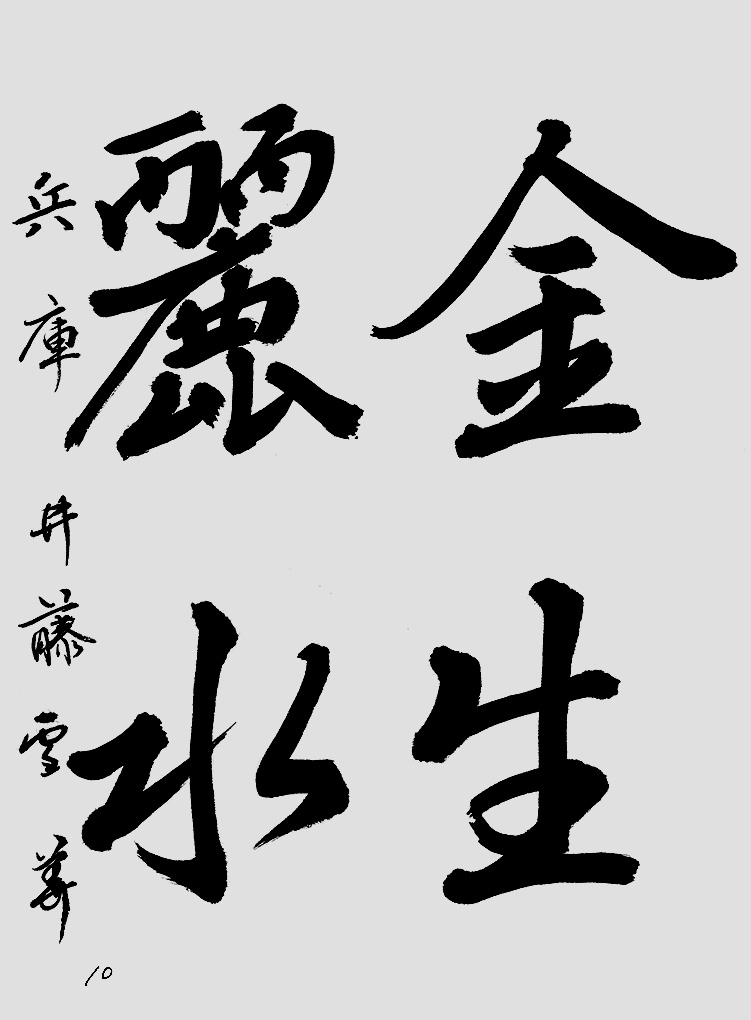 金生
麗水
兵庫 井藤雪美
10